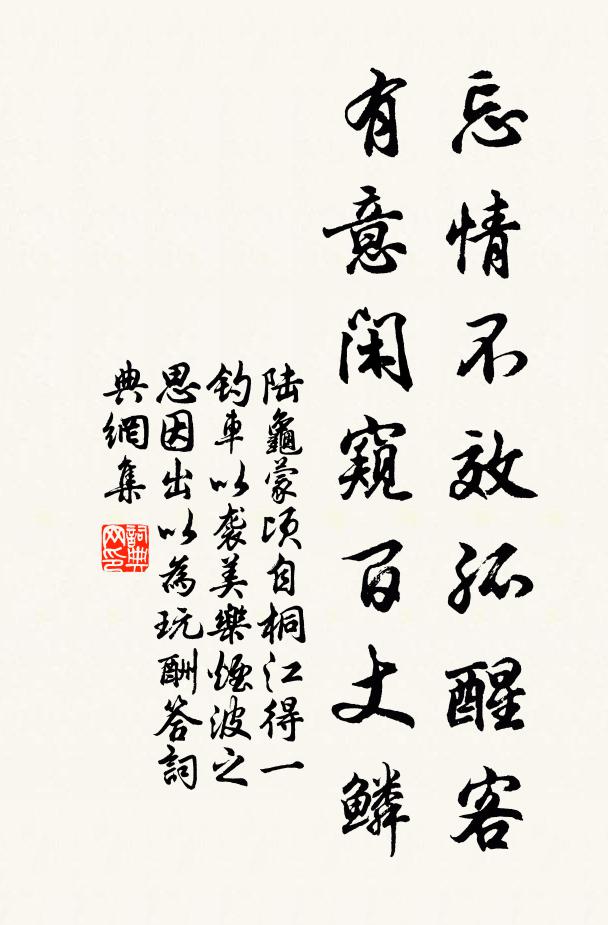 忘情不效孤醒客
有意闲窥百丈鳞
陆龜蒙顷自桐江得一
钓車以袭美樂煙波之
思因出以為玩酬答詞
典網集
詞典
网印